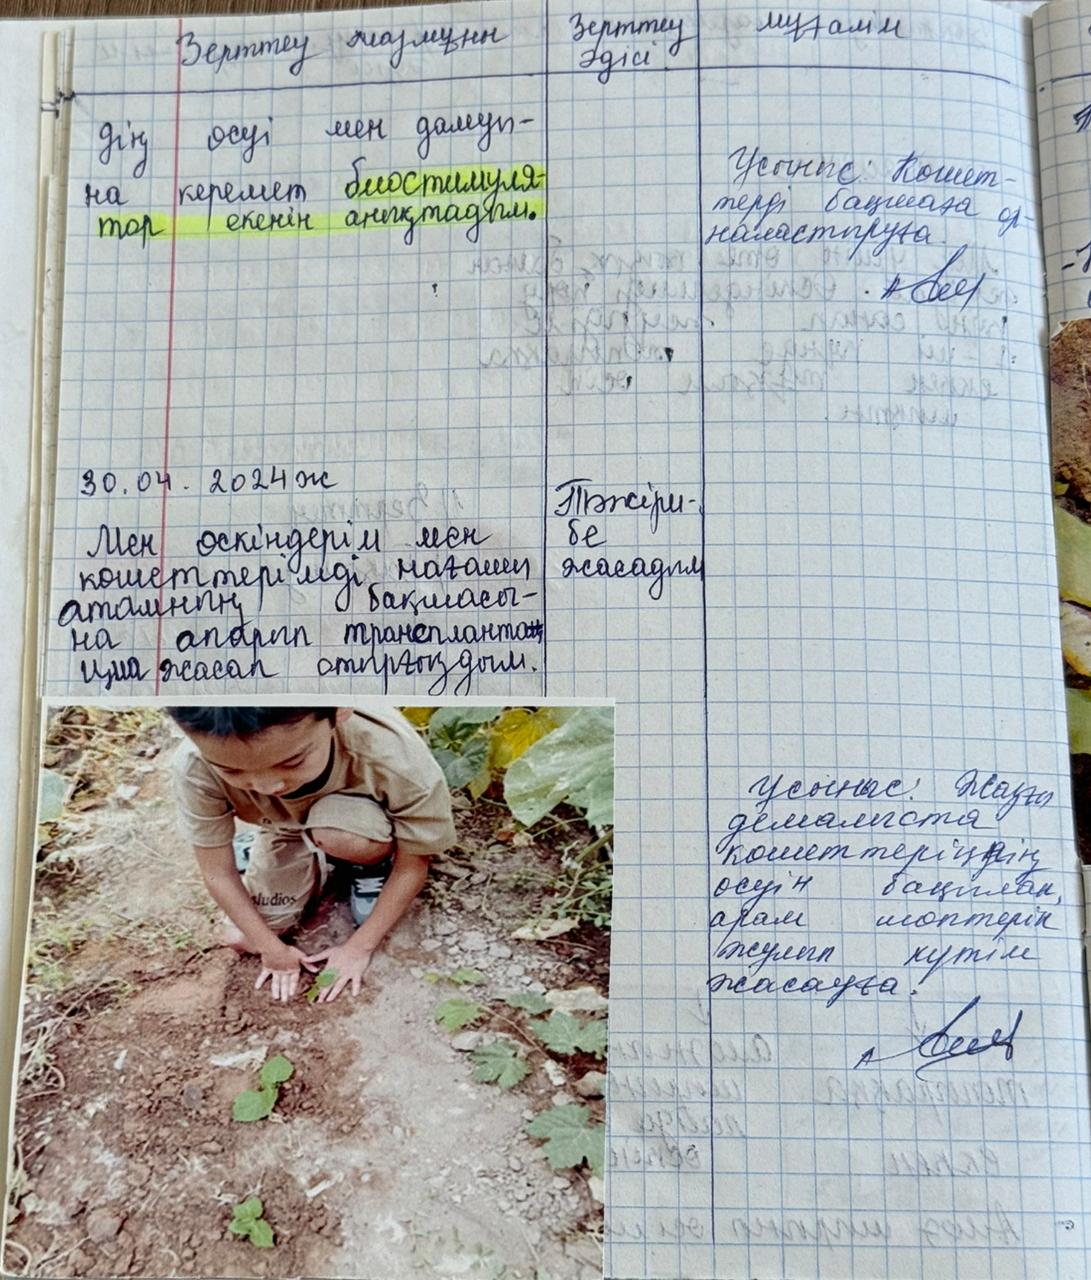 Зерттеу мазмұны
Зерттеу әдісі
мұғалім
дің өсуі мен дамуы-
на керемет биостимуля-
тор екенін анықтадым.
Ұсыныс: Көшет-
терді бақшаға ор-
наластыруға.
30.04.2024ж
Мен өскіндерім мен
көшеттерімді нағашы
атамның бақшасы-
на апарып транспланта-
ция жасап отырғыздым.
Тәжіри-
бе
жасадым
Ұсыныс: Жазғы
демалыста
көшеттеріңнің
өсуін бақылап,
арам шөптерін
жұлып күтім
жасауға.